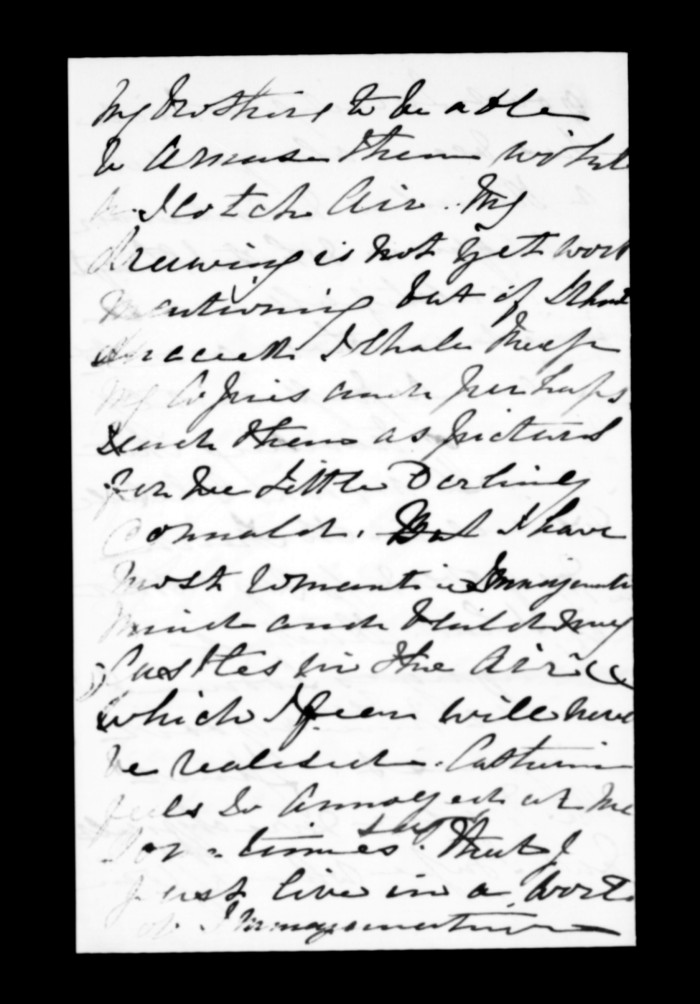 My brothers to be able
to Amuse them with
a Scotch Air. My
drawing is not yet wort
mentioning but if I shoul
succeed I shale keep
my Copies and perhaps
send them as pictures
for the Little Darling
Donald. But I have
most Romantic Immaginativ
mind and build my
Castles in the Air
which I fear will neve
be realised. Catherine
feels so Annoyed at me
Som-times says that I
just live in a World
of Immagination